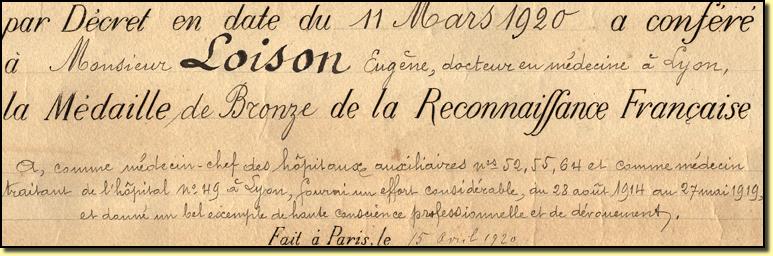 par Décret en date du 11 Mars 1920 a conféré
à Monsieur Loison Eugène, docteur en médecine à Lyon,
la Médaille de Bronze de la Reconnaissance Française
A, comme médecin-chef des hôpitaux auxiliaires nos 52, 55, 64 et comme médecin
traitant de l'hôpital no 49 à Lyon, fourni un effort considérable, du 28 août 1914 au 27 mai 1919,
et donné un bel exemple de haute conscience professionnelle et de dévouement.
Fait à Paris, le 15 avril 1920